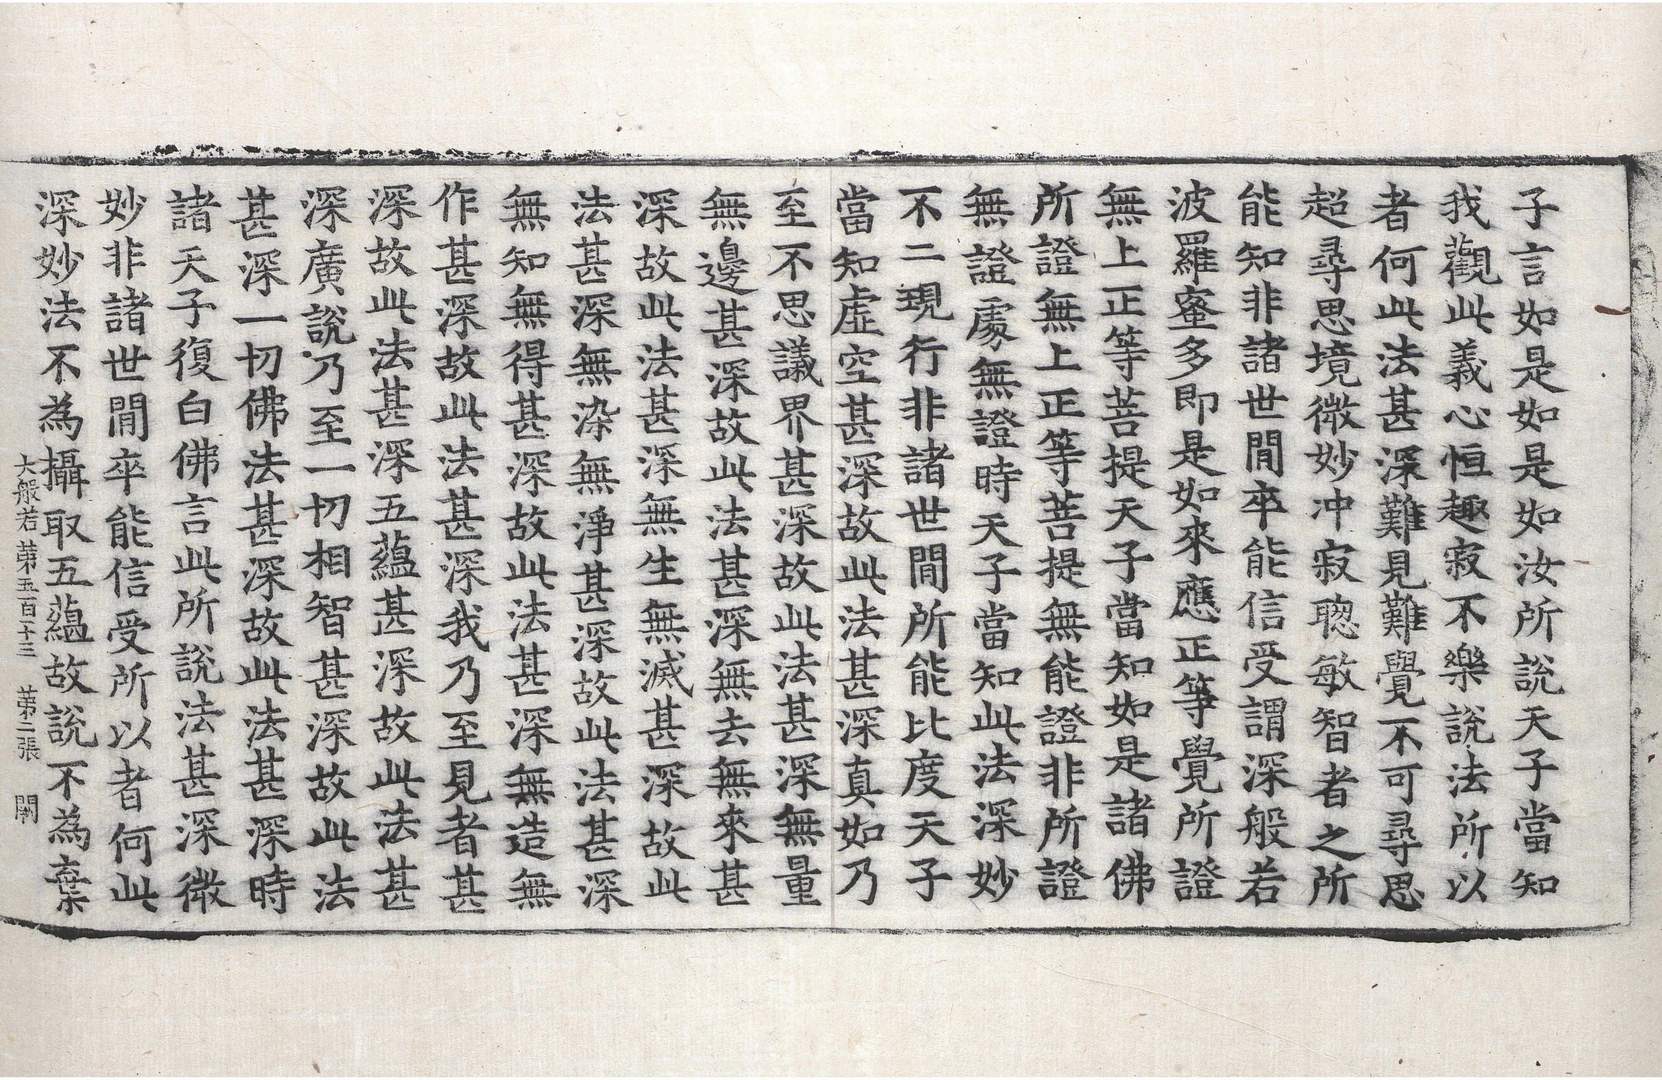 子言如是如是如汝所說天子當知
我觀此義心恒趣寂不樂說法所以
者何此法甚深難見難覺不可尋思
超尋思境微妙冲寂聡敏智者之所
能知非諸世閒卒能信受謂深般若
波羅蜜多即是如來應正等覺所證
無上正等菩提天子當知如是諸佛
所證無上正等菩提無能證非所證
無證處無證時天子當知此法深妙
不二現行非諸世閒所能比度天子
當知虛空甚深故此法甚深真如乃
至不思議界甚深故此法甚深無量
無邊甚深故此法甚深無去無來甚
深故此法甚深無生無滅甚深故此
法甚深無染無淨甚深故此法甚深
無知無得甚深故此法甚深無造無
作甚深故此法甚深我乃至見者甚
深故此法甚深五蘊甚深故此法甚
深廣說乃至一切相智甚深故此法
甚深一切佛法甚深故此法甚深時
諸天子復白佛言此所說法甚深微
妙非諸世閒卒能信受所以者何此
深妙法不為攝取五蘊故說不為棄
大般若第五百十三 第二張 闕